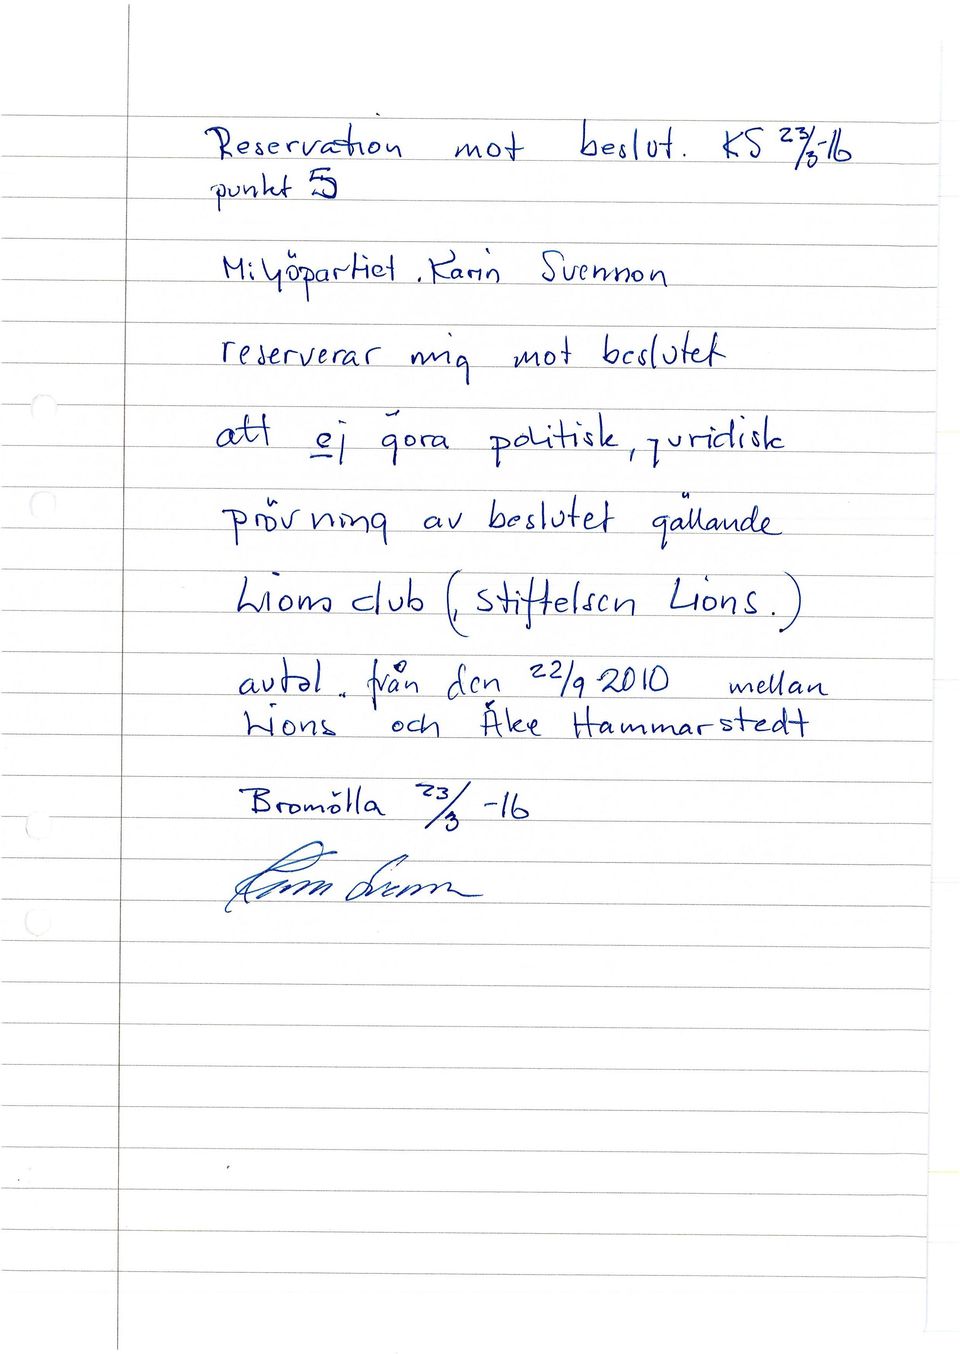 Reservation mot beslut. KS 23/3-16
punkt 5
Miljöpartiet. Karin Svensson
reserverar mig mot beslutet
att ej göra politisk, juridisk
prövning av beslutet gällande
Lions club (, stiftelsen Lions.)
avtal. från den 22/9 2010 mellan
Lions och Åke Hammarstedt
Bromölla 23/3 -16